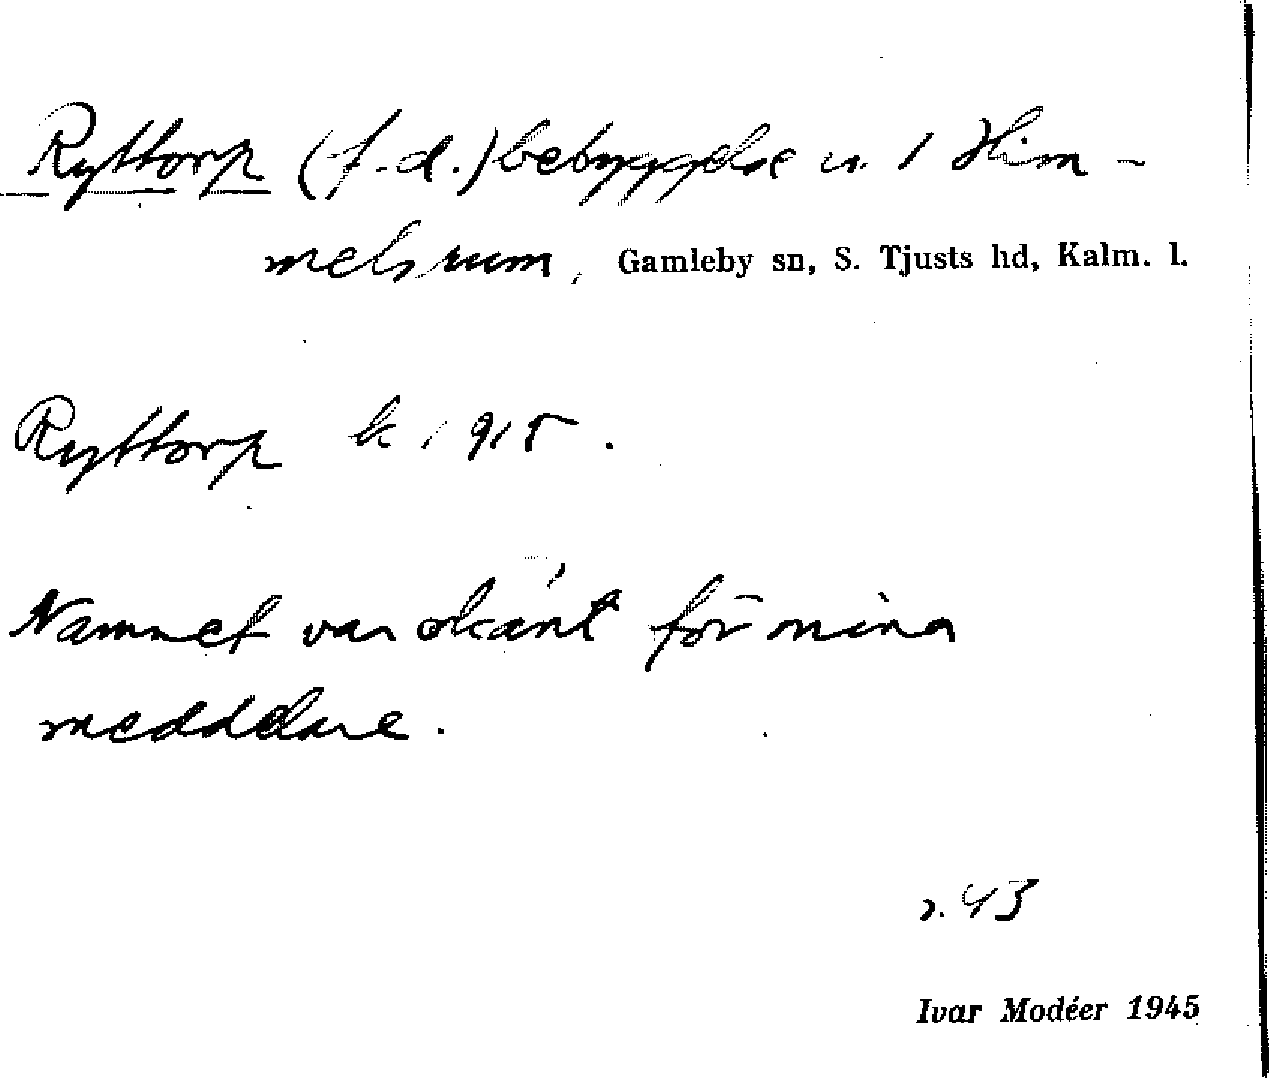 Ryttorp (f.d.) bebyggelse u. 1 Him-
melsrum, Gamleby sn, S. Tjusts hd, Kalm. l.
Ryttorp k 1915.
Namnet var okänt för mina
meddelare.
s. 43
Ivar Modéer 1945